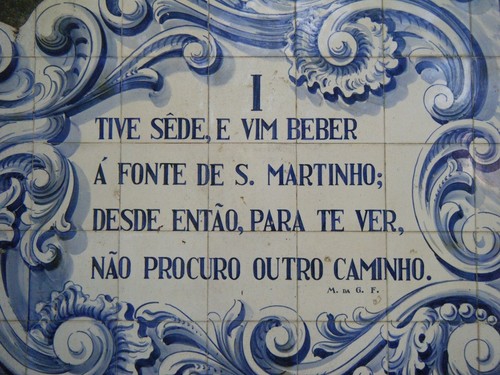 I
TIVE SÊDE, E VIM BEBER
Á FONTE DE S. MARTINHO;
DESDE ENTÃO, PARA TE VER,
NÃO PROCURO OUTRO CAMINHO.
M. DA G. F.